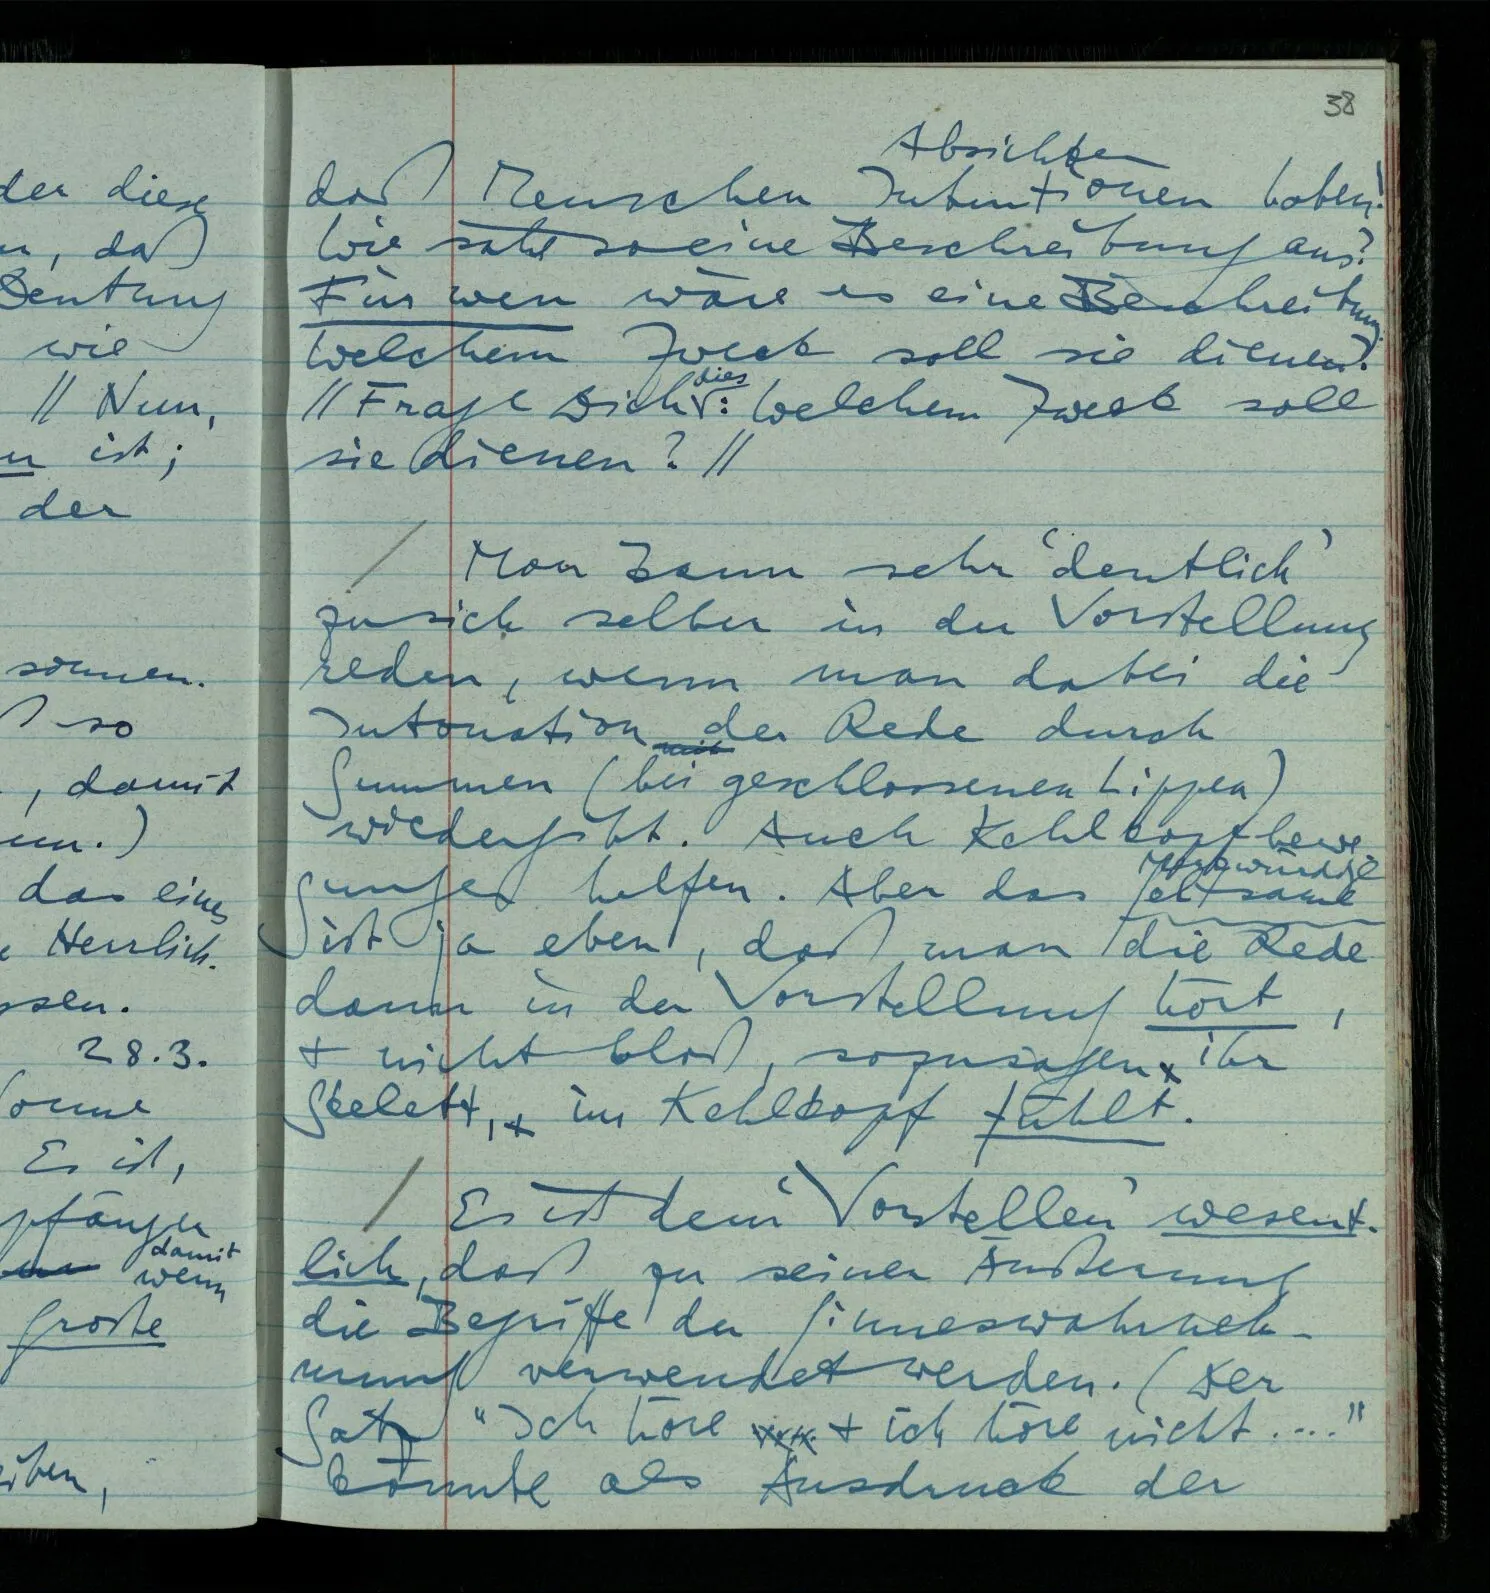 38
der diese
n, daß
Deutung
wie
// Nun,
ist;
der
sonnen.
so
, damit
das eines
Herrlich-
28.3.
Sonne
Es ist,
pfänger
damit
wenn
große
Absichten
daß Menschen Intentionen haben!
Wie sähe so eine Beschreibung aus?
Für wen wäre es eine Beschreibung;
welchem Zweck soll sie dienen?
dies
// Frage Dich: Welchem Zweck soll
sie dienen? //
/ Man kann sehr 'deutlich'
zu sich selber in der Vorstellung
reden, wenn man dabei die
Intonation der Rede durch
Summen (bei geschlossenen Lippen)
wiedergibt. Auch Kehlkopfbewe
Merkwürdige
gungen helfen. Aber das Seltsame
ist ja eben, daß man die Rede
dann in der Vorstellung hört,
+ nicht bloß, sozusagen ihr
Skelett, im Kehlkopf fühlt.
/ Es ist dem 'Vorstellen' wesent-
lich, daß zu seiner Äußerung
die Begriffe der Sinneswahrneh-
mung verwendet werden. (Der
Satz "Ich höre + ich höre nicht ...."
könnte als Ausdruck der